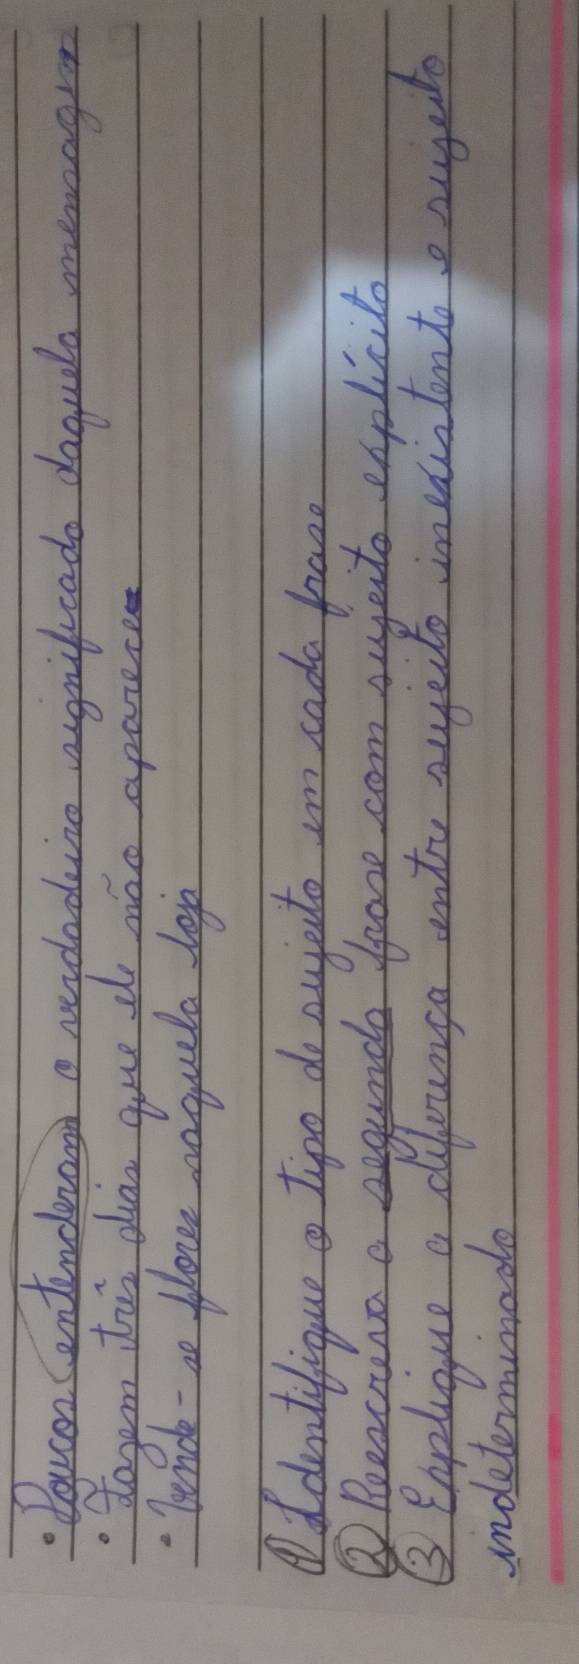 • Poucos entenderam o verdadeiro significado daquela mensagem
• Fazem três dias que ele não aparece
• Vende-se flores naquela loja
① Identifique o tipo de sujeito em cada frase
② Reescreva a segunda frase com sujeito explícito
③ Explique a diferença entre sujeito inexistente e sujeito
indeterminado